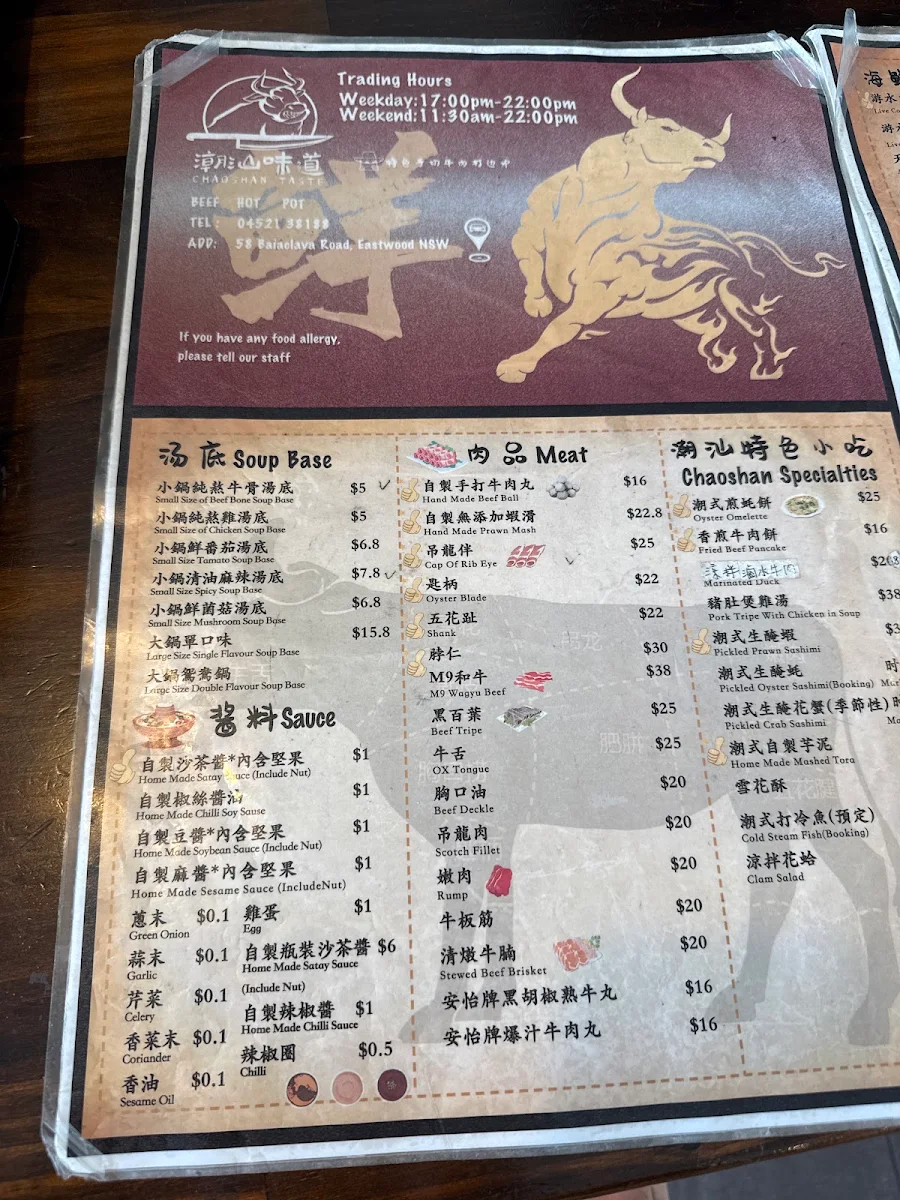 Trading Hours
Weekday:17:00pm-22:00pm
Weekend:11:30am-22:00pm
潮汕味道
CHAOSHAN TASTE
鲜
BEEF HOT POT
TEL: 04521 38188
ADD: 58 Balaclava Road, Eastwood NSW
If you have any food allergy,
please tell our staff
汤底 Soup Base
小鍋純熬牛骨湯底 $5
Small Size of Beef Bone Soup Base
小鍋純熬雞湯底 $5
Small Size of Chicken Soup Base
小鍋鮮番茄湯底 $6.8
Small Size Tomato Soup Base
小鍋清油麻辣湯底 $7.8
Small Size Spicy Soup Base
小鍋鮮菌菇湯底 $6.8
Small Size Mushroom Soup Base
大鍋單口味 $15.8
Large Size Single Flavour Soup Base
大鍋鴛鴦鍋
Large Size Double Flavour Soup Base
酱料 Sauce
自製沙茶醬*內含堅果 $1
Home Made Satay Sauce (Include Nut)
自製椒絲醬油 $1
Home Made Chilli Soy Sause
自製豆醬*內含堅果 $1
Home Made Soybean Sauce (Include Nut)
自製麻醬*內含堅果 $1
Home Made Sesame Sauce (IncludeNut)
蔥末 $0.1
Green Onion
蒜末 $0.1
Garlic
芹菜 $0.1
Celery
香菜末 $0.1
Coriander
香油 $0.1
Sesame Oil
雞蛋 $1
Egg
自製瓶裝沙茶醬 $6
Home Made Satay Sauce
(Include Nut)
自製辣椒醬 $1
Home Made Chilli Sauce
辣椒圈 $0.5
Chilli
肉品 Meat
自製手打牛肉丸 $16
Hand Made Beef Ball
自製無添加蝦滑 $22.8
Hand Made Prawn Mash
吊龍伴 $25
Cap Of Rib Eye
匙柄 $22
Oyster Blade
五花趾 $22
Shank
脖仁 $30
M9和牛 $38
M9 Wagyu Beef
黑百葉 $25
Beef Tripe
牛舌 $25
OX Tongue
胸口油 $20
Beef Deckle
吊龍肉 $20
Scotch Fillet
嫩肉 $20
Rump
牛板筋 $20
清燉牛腩 $20
Stewed Beef Brisket
安怡牌黑胡椒熟牛丸 $16
安怡牌爆汁牛肉丸 $16
潮汕特色小吃
Chaoshan Specialties
潮式煎蚝餅 $25
Oyster Omelette
香煎牛肉餅 $16
Fried Beef Pancake
滷水牛肉
Marinated Duck
豬肚煲雞湯 $38
Pork Tripe With Chicken in Soup
潮式生醃蝦
Pickled Prawn Sashimi
潮式生醃蚝 时
Pickled Oyster Sashimi(Booking)
潮式生醃花蟹(季節性)
Pickled Crab Sashimi
潮式自製芋泥
Home Made Mashed Tora
雪花酥
潮式打冷魚(預定)
Cold Steam Fish(Booking)
涼拌花蛤
Clam Salad
海鮮
游水